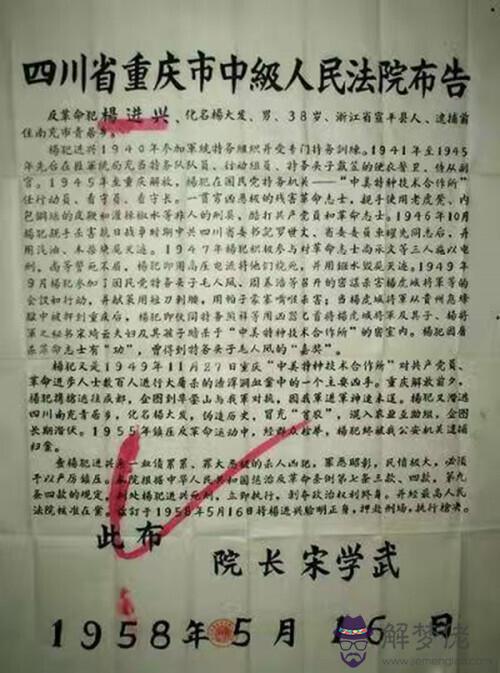 四川省重庆市中級人民法院布告
反革命犯楊进兴、化名楊大发、男、38岁、浙江省宣平县人、逮捕前
住南充市青居乡。
楊犯进兴1940年参加軍統特务組织并受专门特务訓練。1941年至1945
年先后在胜軍統局充当特务队队員、行动組員、特务头子戴笠的便衣警卫、侍从副
官。1945年至重庆解放，楊犯在国民党特务机关——“中美特种技术合作所”
任行动員、看守員、看守长。一貫穷凶恶极的残害革命志士，親手使用老虎凳、内
包鋼絲的皮鞭和灌辣椒水等非人的刑具，酷打共产党員和革命志士。1946年10月
楊犯親手杀害抗日战爭时期中共四川省委书記罗世文、省委委員車耀先同志后，并
用汽油、木柴焚尸灭迹。1947年楊犯积极参与对革命志士尚承文等三人施以电
刑，尚等誓死不屈，楊犯即用高压电流将他們烧死，并用鏹水毁尸灭迹。1949年
9月楊犯参加了国民党特务头子毛人凤、周养浩等召开的密謀杀害楊虎城将軍等的
会議和行动，并献策用短刀刺腰，用帕子蒙口咀杀害；当楊虎城将軍从貴州息烽
獄中被押到重庆后，楊犯即伙同特务熊祥等用凶器匕首将楊虎城将軍及其子、楊将
軍之秘书宋綺云夫妇及其孩子暗杀于“中美特种技术合作所”的密室內。楊犯因屠
杀革命志士有“功”，曾得到特务头子毛人凤的“嘉奖”。
楊犯又是1949年11月27日重庆“中美特种技术合作所”对共产党員、
革命进步人士数百人进行大屠杀的滔滔血案中的一个主要凶手。重庆解放前夕，
楊犯携槍逃往成都，企图到与我軍对抗，因我軍进軍神速未逞。楊犯又潛逃
四川南充青居乡，化名楊大发，伪造历史，冒充“貧农”，混入农业互助組，企图
长期潛伏。1955年鎮压反革命运动中，經群众检举，楊犯終被我公安机关逮捕
归案。
查楊犯进兴是一血債累累、罪大恶极的杀人凶犯，罪恶昭彰，民愤极大，必須
予以严厉鎮压。本院根据中华人民共和国惩治反革命条例第七条三款、四款，第九
条四款的规定，判处楊进兴死刑，立即执行，剥夺政治权利終身。并經最高人民
法院核准在案。兹訂于1958年5月16日将楊进兴驗明正身，押赴刑場，执行槍决。
此布
院长宋学武
1958年5月16日
解梦佬
www.jiemenglao.com